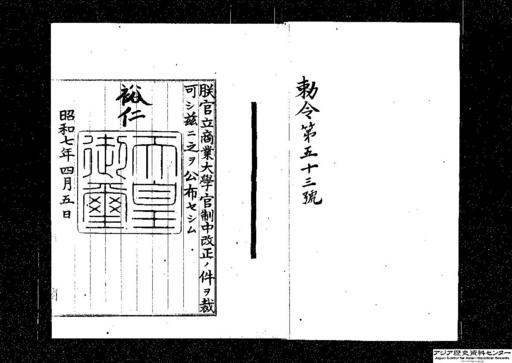 勅令第五十三號
朕官立商業大學官制中改正ノ件ヲ裁
可シ茲ニ之ヲ公布セシム
裕仁
天皇
御璽
昭和七年四月五日
アジア歴史資料センター
Japan Center for Asian Historical Records